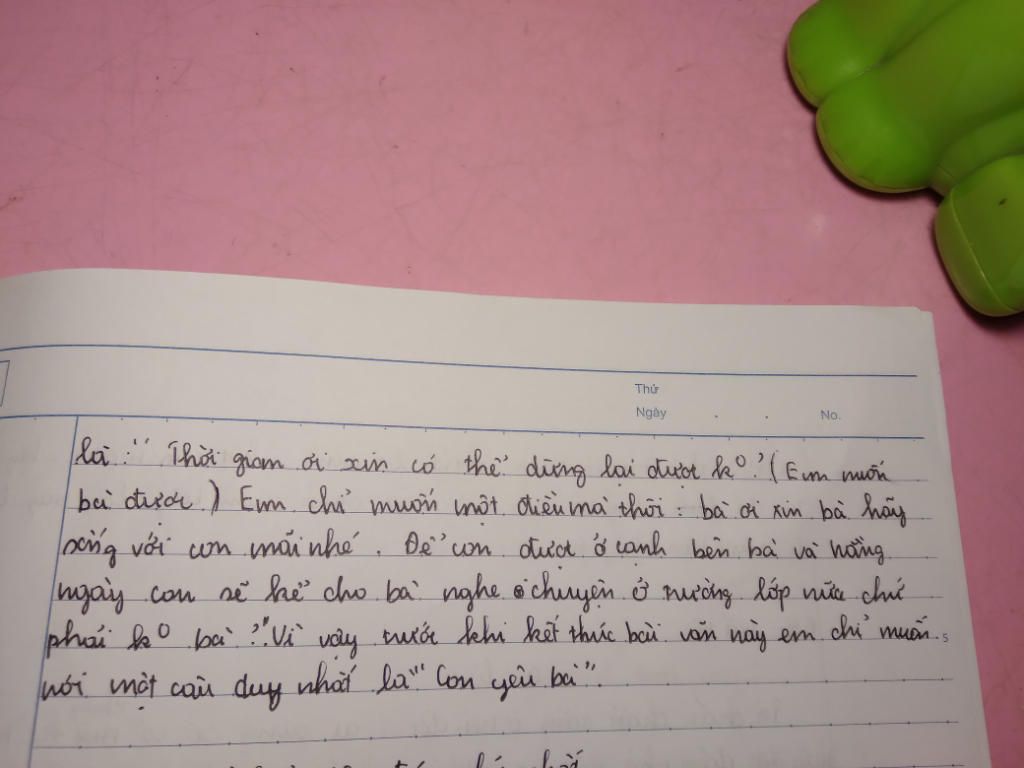 Thứ
Ngày . . No.
là: " Thời gian ơi xin có thể dừng lại được k⁰? (Em muốn
bà được) Em chỉ muốn một điều mà thôi: bà ơi xin bà hãy
sống với con mãi nhé. Để con được ở cạnh bên bà và hằng
ngày con sẽ kể cho bà nghe chuyện ở trường lớp nữa chứ
phải k⁰ bà?" Vì vậy trước khi kết thúc bài văn này em chỉ muốn
5
nói một câu duy nhất là "Con yêu bà".